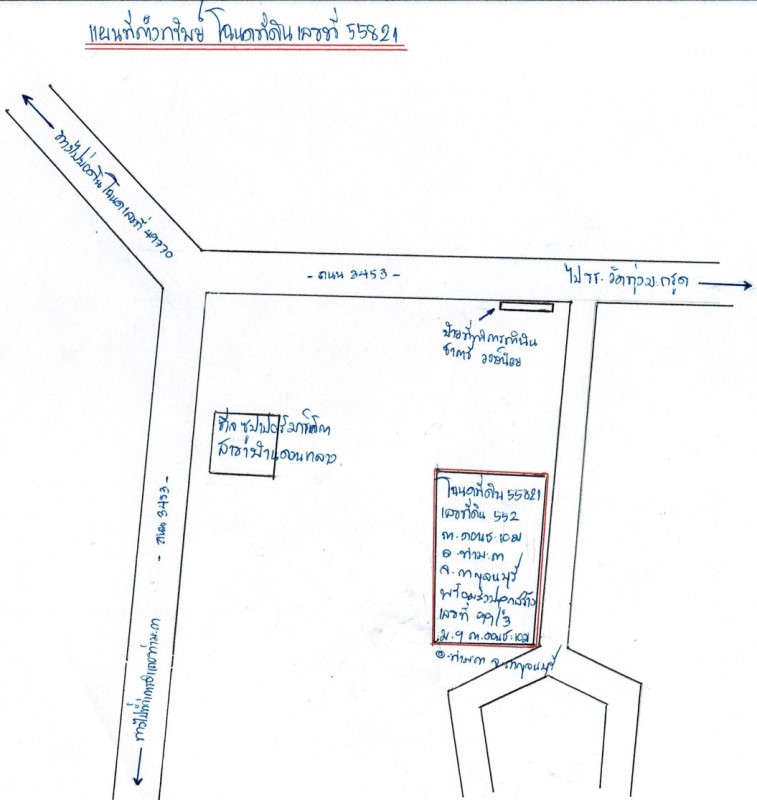 แผนที่ตั้งทรัพย์ โฉนดที่ดิน เลขที่ 55821
ทางไปบ่อดิน โฉนดเลขที่
- ถนน 3453 -
ไป รร. วัดท่ามะกรูด
ป้ายที่ทำการกำนัน
ชาตรี วงษ์น้อย
ซีเจ ซุปเปอร์มาร์เก็ต
สาขาบ้านดอนกลาง
- ถนน 3453 -
โฉนดที่ดิน 55821
เลขที่ดิน 552
ต. ดอนชะเอม
อ. ท่ามะกา
จ. กาญจนบุรี
พร้อมสิ่งปลูกสร้าง
เลขที่ 99/3
ม. 9 ต. ดอนชะเอม
อ. ท่ามะกา จ. กาญจนบุรี
ทางไปที่ว่าการอำเภอท่ามะกา